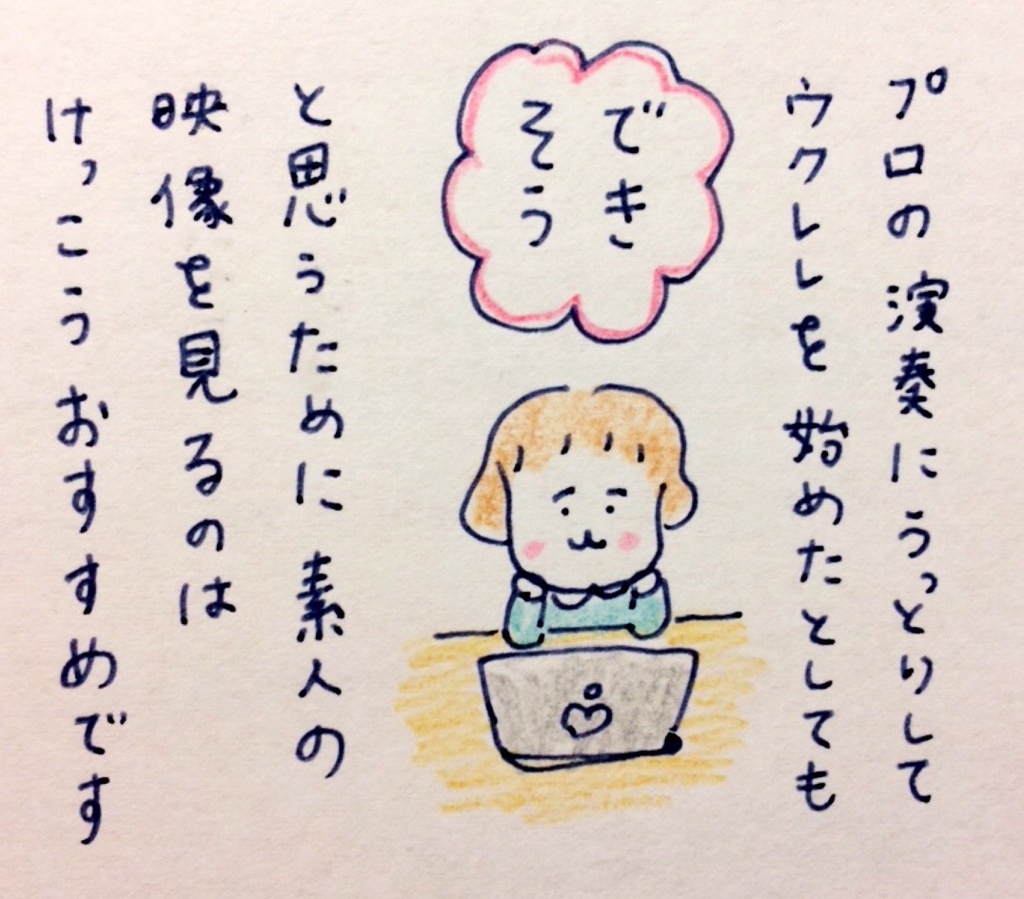 プロの演奏にうっとりして
ウクレレを始めたとしても
でき
そう
と思うために素人の
映像を見るのは
けっこうおすすめです